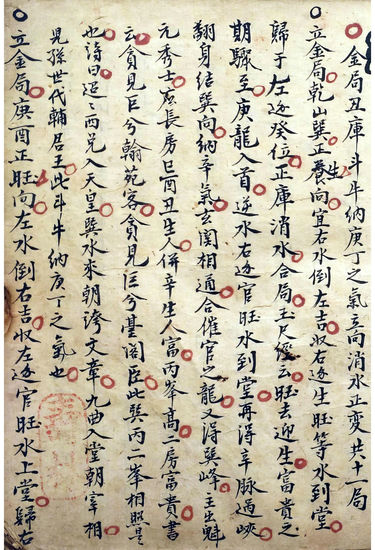 ○金局丑庫斗牛納庚丁之氣立向消水正變共十一局
○立金局乾山巽正養向宜右水倒左吉收右逐生旺等水到堂
歸于左逐癸位正庫消水合局玉尺經云旺去迎生富貴之
期驟至庚龍入首逆水右逐官旺水到堂再得辛脉過峽
翻身結巽向納辛氣玄関相通合催官之龍又得巽峰主出魁
元秀士應長房巳酉丑生人併辛生人富丙峯高二房富貴書
云貪見巨兮翰苑客貪見臣兮臺閣臣此巽丙二峯相照是
也詩曰迢迢西兌入天皇巽水來朝誇文章九曲入堂朝宰相
兒孫世代輔居王此斗牛納庚丁之氣也
○立金局庚酉正旺向左水倒右吉收左逐官旺水上堂歸右